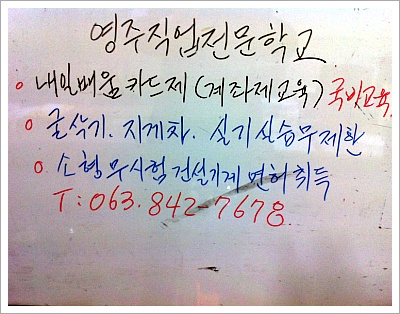 영주직업전문학교
내일배움카드제 (계좌제교육) 국빗교육
굴삭기. 지게차. 실기실습무제한
소형무시험 건설기계 면허취득
T: 063.842-7678